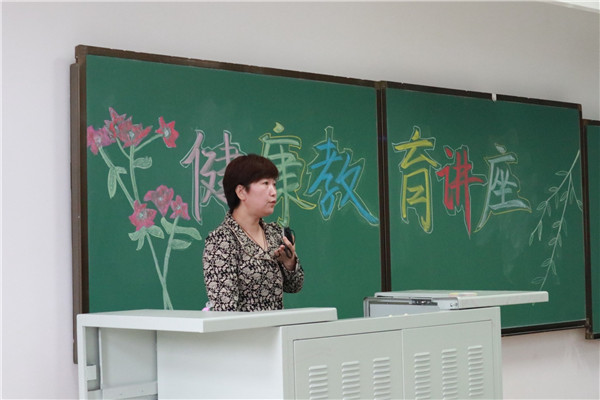 健康教育讲座